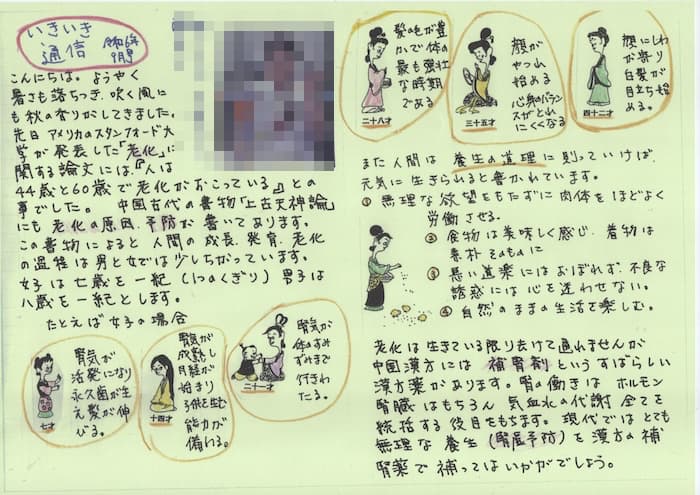 いきいき
通信
令和6年
9月号
こんにちは。ようやく
暑さも落ちつき、吹く風に
も秋の香りがしてきました。
先日アメリカのスタンフォード大
学が発表した「老化」に
関する論文には、『人は
44歳と60歳で老化がおこっている』との
事でした。 中国古代の書物「上古天神論」
にも老化の原因、予防が書いてあります。
この書物によると人間の成長、発育、老化
の過程は男と女では少しちがっています。
女子は七歳を一紀(1つのくぎり)男子は
八歳を一紀とします。
たとえば女子の場合
腎気が
活発になり
永久歯が生
え髪が伸
びる。
七才
腎気が
成熟し
月経が
始まり
子供を生む
能力が
備わる。
十四才
腎気が
体のすみ
ずみまで
行きわ
たる。
二十一才
髪の毛が豊
かで体の
最も強壮
な時期
である
二十八才
顔が
やつれ
始める
心身のバラン
スがとれ
にくくなる
三十五才
顔にしわ
が寄り
白髪が
目立ち始
める。
四十二才
また人間は養生の道理に則っていけば、
元気に生きられると書かれています。
① 無理な欲望をもたずに肉体をほどよく
労働させる。
② 食物は美味しく感じ、着物は
素朴そのものに
③ 悪い道楽にはおぼれず、不良な
誘惑には心を迷わせない。
④ 自然のままの生活を楽しむ。
老化は生きている限り去けて通れませんが
中国漢方には補腎剤というすばらしい
漢方薬があります。腎の働きはホルモン
腎臓はもちろん気血水の代謝全てを
統括する役目をもちます。現代ではとても
無理な養生(腎虚予防)を漢方の補
腎薬で補ってはいかがでしょう。